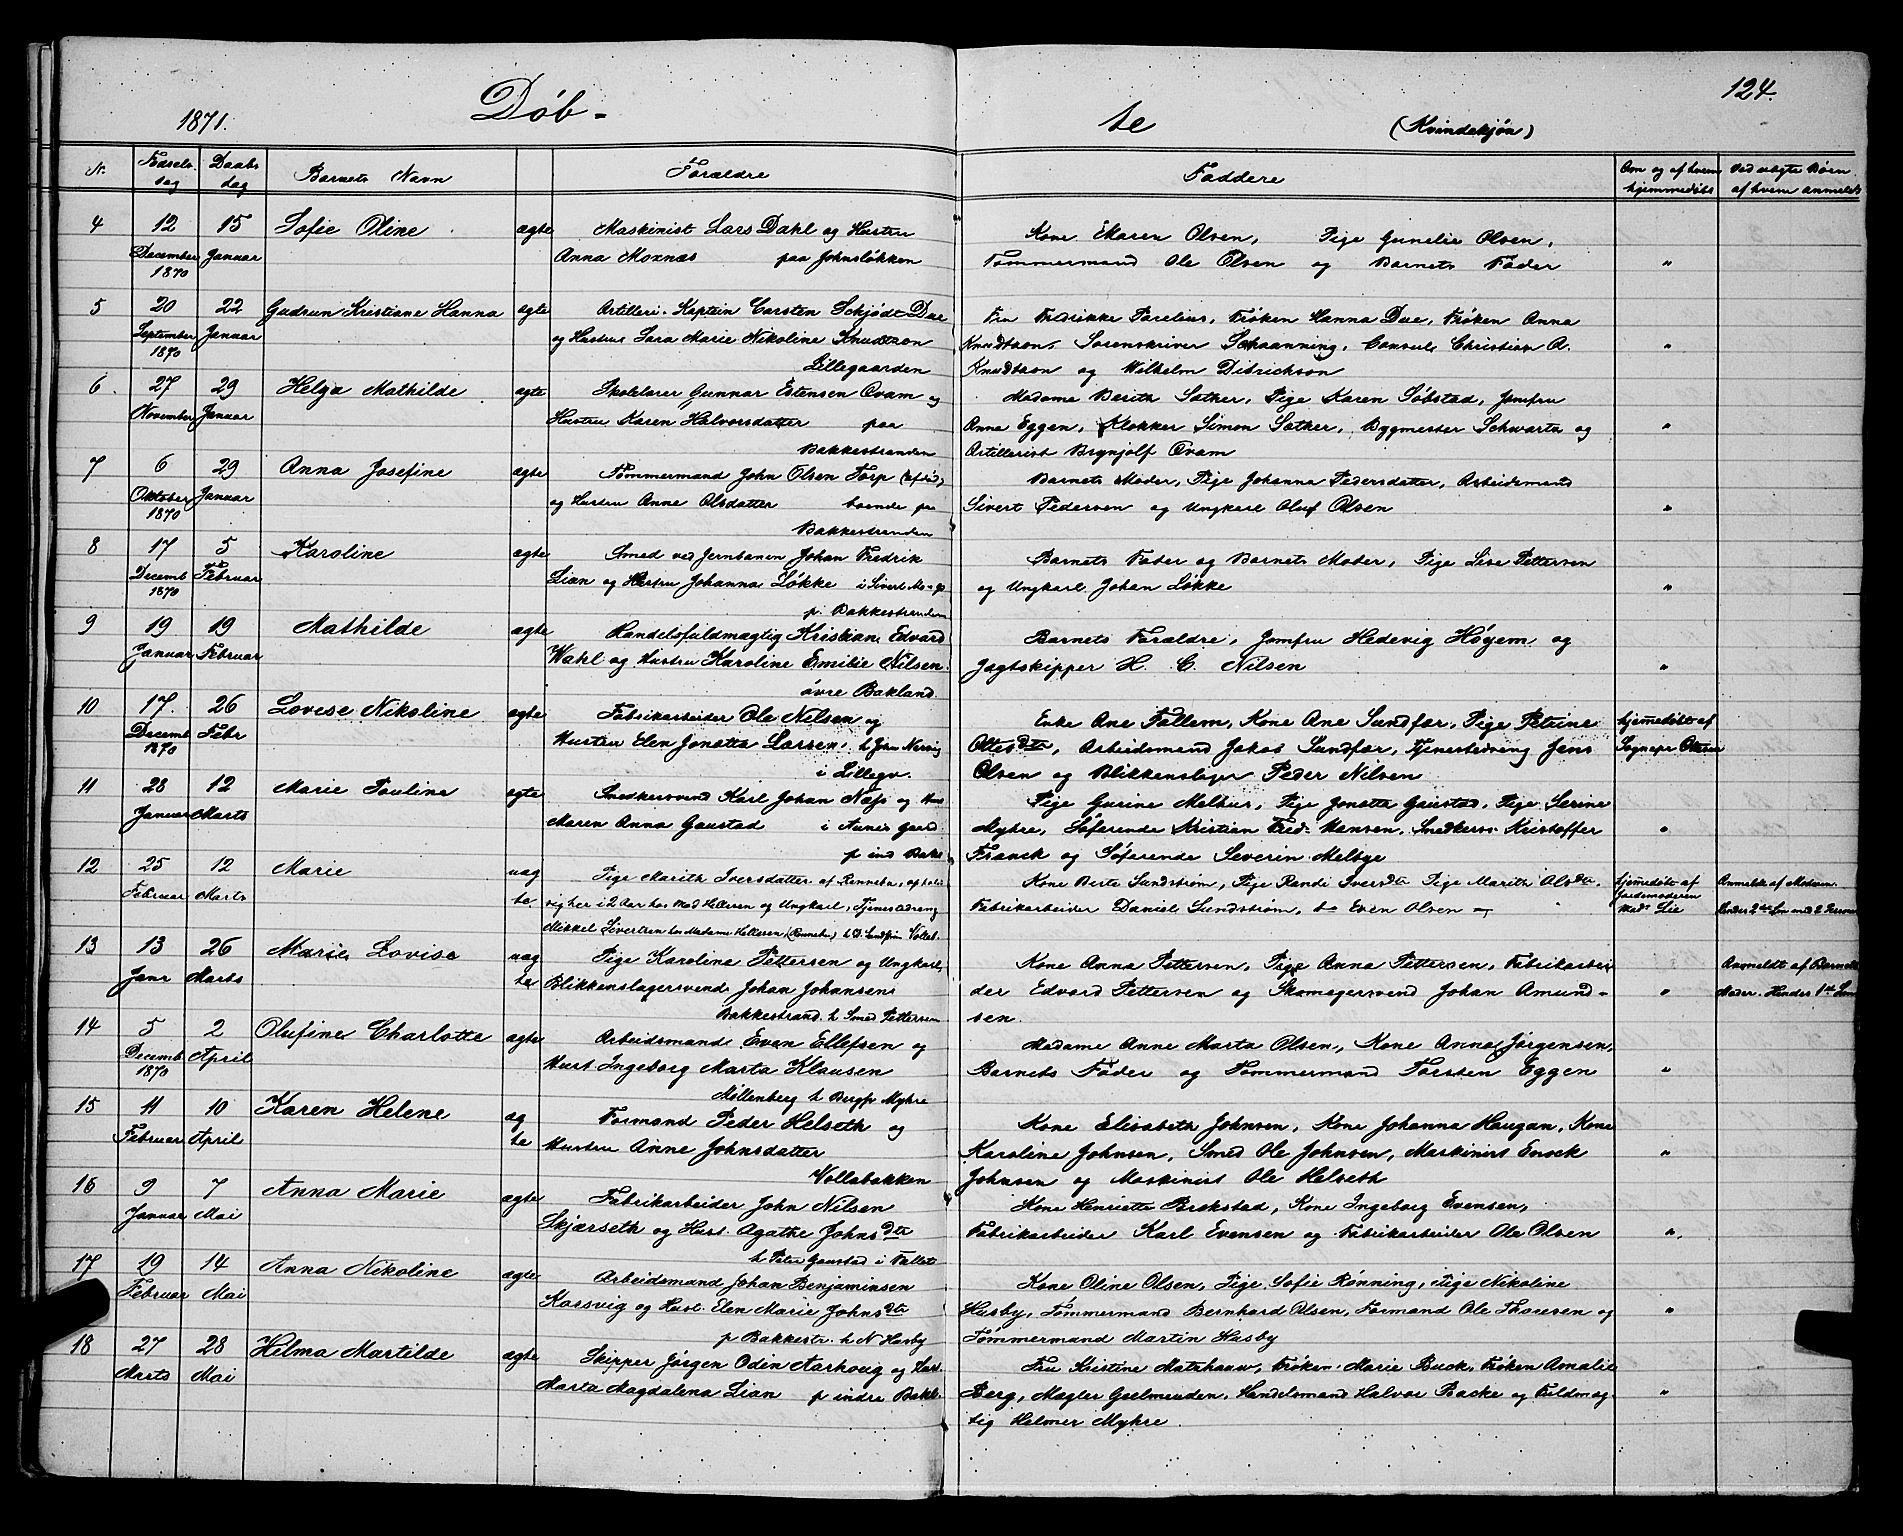 124.
1871. Döb- te (Kvindekjøn)
N. Fødsels dag Daabs dag Barnets Navn Forældre Faddere Om og af hvem hjemmedøbt Ved uægte Børn af hvem anmeldt
4 12 15 Sofie Oline ægte Maskinist Lars Dahl og Hustru Kone Maren Olsen, Pige Gunelie Olsen,
December Januar Anna Moxnæs paa Johnsløkken Tømmermand Ole Olsen og Barnets Fader "
1870
5 20 22 Gudrun Kristiane Hanna ægte Artilleri-Kaptein Carsten Schjødt Due Fru Fredrikke Parelius, Frøken Hanna Due, Frøken Anna
September Januar og Hustru Sara Marie Nikoline Knudtzon Knudtzon, Sorenskriver Schaanning, Consul Christian A. "
1870 Lillegaarden Knudtzon og Wilhelm Ditrichson
6. 27 29 Helga Mathilde ægte Skolelærer Gunnar Estensen Qvam og Madame Berith Sæther, Pige Karen Søbstad, Jomfru
November Januar Hustru Karen Halvorsdatter paa Anna Eggen, Klokker Simon Sæther, Bygmester Schwartz og "
Bakkestranden Artillerist Brynjolf Qvam
7 6 29 Anna Josefine ægte Tømmermand John Olsen Torp (afdød) Barnets Moder, Pige Johanna Pedersdatter, Arbeidsmand
Oktober Januar og Hustru Anne Olsdatter boende paa Sivert Pedersen og Ungkarl Oluf Olsen "
1870 Bakkestranden
8 17 5 Karoline ægte Smed ved Jernbanen Johan Fredrik Barnets Fader og Barnets Moder, Pige Lise Pettersen
Decemb Februar Lian og Hustru Johanna Løkke i Sivert Mo-g og Ungkarl Johan Løkke "
1870 p. Bakkestranden
9 19 19 Mathilde ægte Handelsfuldmægtig Kristian Edvard Barnets Forældre, Jomfru Hedevig Høyem og
Januar Februar Wahl og Hustru Karoline Emilie Nilsen. Jagtskipper H. C. Nilsen "
øvre Bakland.
10 17. 26 Lovise Nikoline ægte Fabrikarbeider Ole Nilsen og Enke Ane Fallem, Kone Ane Sundfær, Pige Petrine hjemmedøbt af
Decemb Febr Hustru Elen Jonetta Larsen, h Jon Nervig Oltesdtr, Arbeidsmand Jakob Sundfær, Tjenestedreng Jens Sognepr
1870 i Lillegv. Olsen og Blikkenslager Peder Nilsen
11 28 12 Marie Pauline ægte Snedkersvend Karl Johan Næss og Hus Pige Gurine Melhus, Pige Jonetta Gaustad, Pige Serine
Januar Marts Maren Anna Gaustad i Gaard Myhre, Søfarende Kristian Fred. Hansen, Snedkersv. Kristoffer "
p ind Bakl Franck og Søfarende Severin Melbye
12 25 12 Marie uæg Pige Marith Iversdatter af Rennebu, ophold Kone Berte Sundstrøm, Pige Randi Iversdtr Pige Marith Olsdtr. hjemmedøbt af Anmeldt af Moderen.
Februar Marts te. sig her i 2 Aar hos Mad Helleren og Ungkarl, Tjenestedreng Fabrikarbeider Daniel Sundstrøm, do Even Olsen Jordemoderen Hendes 2det
Mikkel Sivertsen hos Madame Hellesen (Rennebu) Vollab. Mad. Lie
13 13 26 Marie Lovise uæg Pige Karoline Pettersen og Ungkarl, Kone Anna Pettersen, Pige Anna Pettersen, Fabrikarbei Anmeldt af Barnets
Janr Marts te Blikkenslagersvend Johan Johansen der Edvard Pettersen og Skomagersvend Johan Amund- " Moder. Hendes 1ste
Bakkestrand. h Smed Pettersen sen.
14 5 2 Olufine Charlotte ægte Arbeidsmand Even Ellefsen og Madame Anne Marta Olsen, Kone Anna Jørgensen,
Decemb April Hust Ingeborg Marta Klausen Barnets Fader og Tømmermand Torsten Eggen "
1870 Møllenberg h Bergp Myhre
15 11 10 Karen Helene æg Formand Peder Helseth og Kone Elisabeth Johnsen, Kone Johanna Haugan, Kone
Februar April te Hustru Anne Johnsdatter Karoline Johnsen, Smed Ole Johnsen, Maskinist Enock "
Vollabakken Johnsen og Maskinist Ole Helseth
16 9 7 Anna Marie ægte Fabrikarbeider John Nilsen Kone Henriette Brekstad, Kone Ingeborg Evensen,
Januar Mai Skjærseth og Hust. Agathe Johnsdtr Fabrikarbeider Karl Evensen og Fabrikarbeider Ole Olsen ".
h Peter Gaustad i
17 19 14 Anna Nikoline ægte Arbeidsmand Johan Benjaminsen Kone Oline Olsen, Pige Sofie Rønning, Pige Nikoline
Februar Mai Korsvig og Hust. Elen Marie Johnsdtr Husby, Tømmermand Bernhard Olsen, Formand Ole Thoresen og "
p Bakkestr. h N Husby Tømmermand Martin Husby
18 27 28 Helma Martilde ægte Skipper Jørgen Odin Aarhoug og Hust. Fru Kristine Matzhauw, Frøken Marie Buck, Frøken Amalie
Marts Mai Marta Magdalena Lian p indre Bakl Berg, Mægler Gjelmeuden, Handelsmand Halvor Bakke og Fuldmæg "
tig Helmer Myhre.